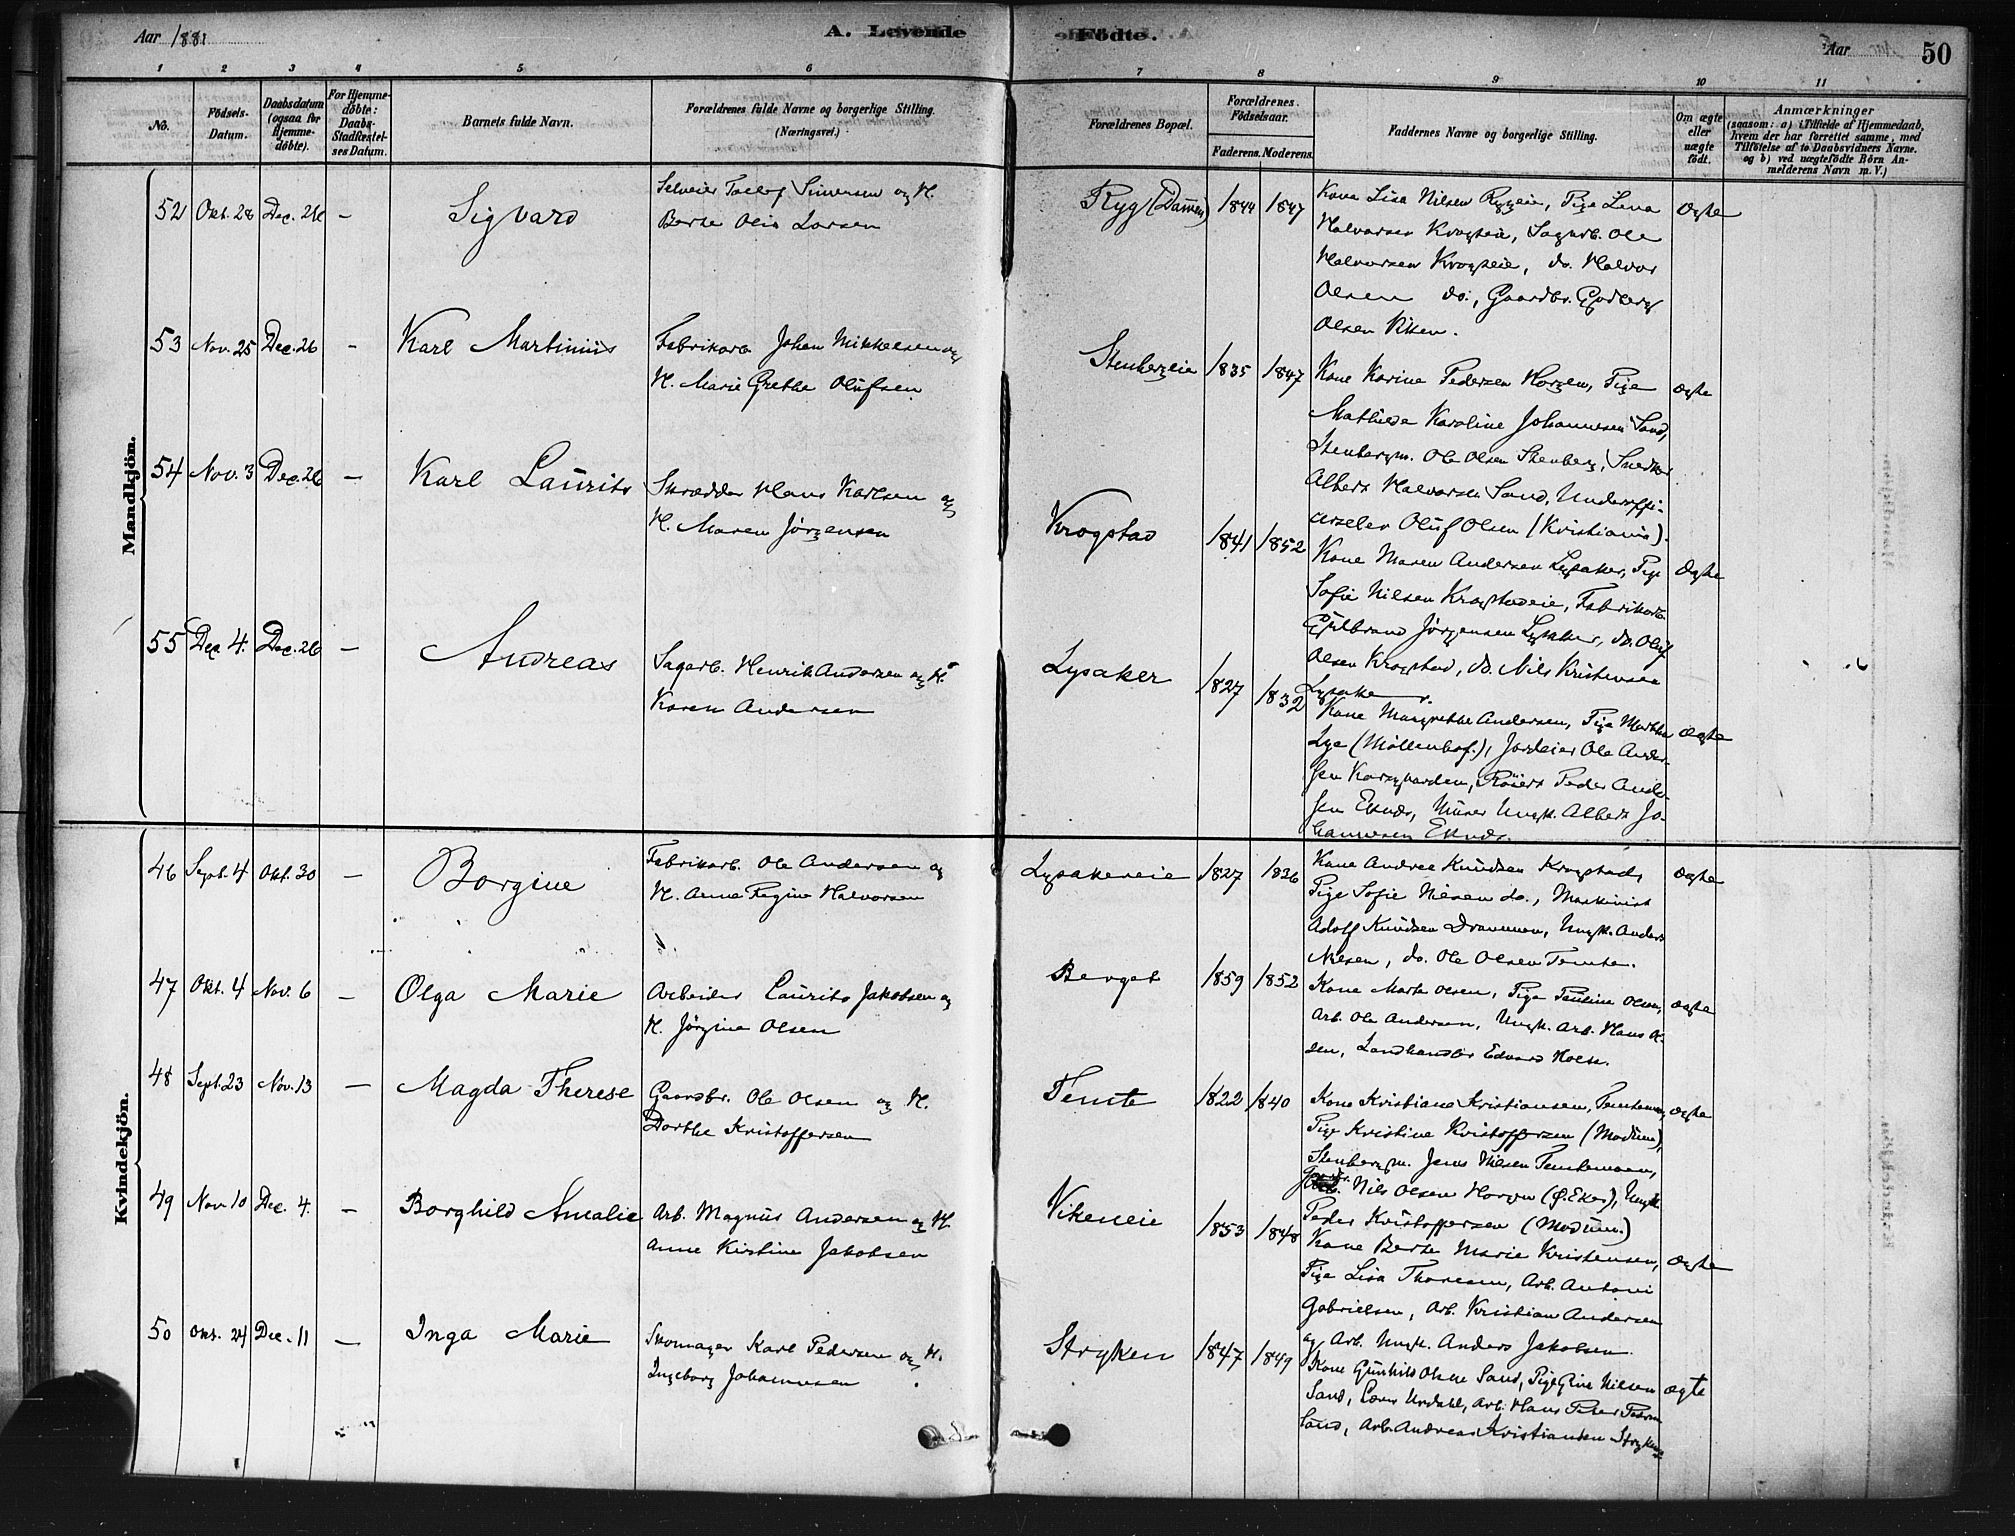 Aar 1881
A. Levende Födte.
Aar
50
1 2 3 4 5 6 7 8 9 10 11
No.
Födsels-Datum.
Daabsdatum (ogsaa for Hjemme-döbte).
For Hjemme-döbte: Daabs-Stadfæstel-ses Datum.
Barnets fulde Navn.
Forældrenes fulde Navne og borgerlige Stilling.
(Næringsvei.)
Forældrenes Bopæl.
Forældrenes Födselsaar.
Faderens. Moderens.
Faddernes Navne og borgerlige Stilling.
Om ægte eller uægte födt.
Anmærkninger
(saasom: a) i Tilfælde af Hjemmedaab,
hvem der har forrettet samme, med
Tilföielse af to Daabsvidners Navne.
og b) ved uægtefödte Börn An-
melderens Navn m. V.)
Mandkjön.
52 Okt. 28 Dec. 26 — Sigvard
Selveier Tollef Simensen og H.
Berte Olia Larsen
Ryg (Dammen) 1844 1847
Kone Lisa Nilsen Rygeie, Pige Lena
Halvorsen Krogseie, Sagarb. Ole
Halvorsen Krogseie, do. Halvor
Olsen do., Gaardbr. Gudbrand
Olsen Viken.
Ægte
53 Nov. 25 Dec. 26 - Karl Martinius
Fabrikarb. Johan Mikkelsen og
H. Marie Grethe Olufsen
Stenbergeie 1835 1847
Kone Karine Pedersen Horgen, Pige
Mathilde Karoline Johannesen Sand,
Stenbergm. Ole Olsen Stenberg, Snedker
Albert Halvorsen Sand, Underoffi-
cerselev Oluf Olsen (Kristiania).
Ægte
54 Nov. 3 Dec. 26 — Karl Laurits
Skrædder Hans Karlsen og
H. Maren Jørgensen
Krogstad 1841 1852
Kone Maren Andersen Lysaker, Pige
Sofie Nilsen Krogstadeie, Fabrikarb.
Gulbrand Jørgensen Lysaker, do. Oluf
Olsen Krogstad, do. Nils Kristensen
Lysaker.
Ægte
55 Dec. 4. Dec. 26 — Andreas
Sagarb. Henrik Andersen og H.
Karen Andersen
Lysaker 1827 1832
Kone Margrethe Andersen, Pige Marthe
Lye (Møllenhof.), Jordeier Ole Ander-
sen Korsgaarden, Peder Ander-
sen Eknes, Murer Ungk. Albert Jo-
hannesen Eknes.
Ægte
Kvindekjön.
46 Sept. 4 Okt. 30 — Borgine
Fabrikarb. Ole Andersen og
H. Anne Regine Halvorsen
Lysakereie 1827 1836
Kone Andrea Knudsen Krogstad,
Pige Sofie Nilsen do., Maskinist
Adolf Knudsen Drammen, Ungk. Anders
Nilsen, do. Ole Olsen Temte.
Ægte
47 Okt. 4 Nov. 6 — Olga Marie
Arbeider Laurits Jakobsen og
H. Jørgine Olsen
Berget 1859 1852
Kone Marte Olsen, Pige Pauline Olsen,
Arb. Ole Andersen, Ungk. Arb. Hans Ol-
sen, Landhandler Edvard Holse.
Ægte
48 Sept. 23 Nov. 13 — Magda Therese
Gaardbr. Ole Olsen og H.
Dorthe Kristoffersen
Temte 1822 1840
Kone Kristiane Kristiansen, Temtemoen,
Pige Kristine Kristoffersen (Modum),
Stenbergm. Jens Nilsen Temtemoen,
Gaardbr. Nils Olsen Horgen (Ø. Eker), Ungk.
Peder Kristoffersen (Modum.)
Ægte
49 Nov. 10 Dec. 4. — Borghild Amalie
Arb. Magnus Andersen og H.
Anne Kirstine Jakobsen
Vikeneie 1853 1848
Kone Berte Marie Kristensen,
Pige Lisa Thoresen, Arb. Antoni
Gabrielsen, Arb. Kristian Andersen
og Arb. Ungk. Anders Jakobsen.
Ægte
50 Okt. 24 Dec. 11 — Inga Marie
Skomager Karl Pedersen og H.
Ingeborg Johannesen
Stryken 1847 1849
Kone Gunhild Olsen Sand, Pige Gine Nilsen
Sand, Urdahl, Arb. Hans Peter
Sand, Arb. Andreas Kristiansen Stryken
Ægte